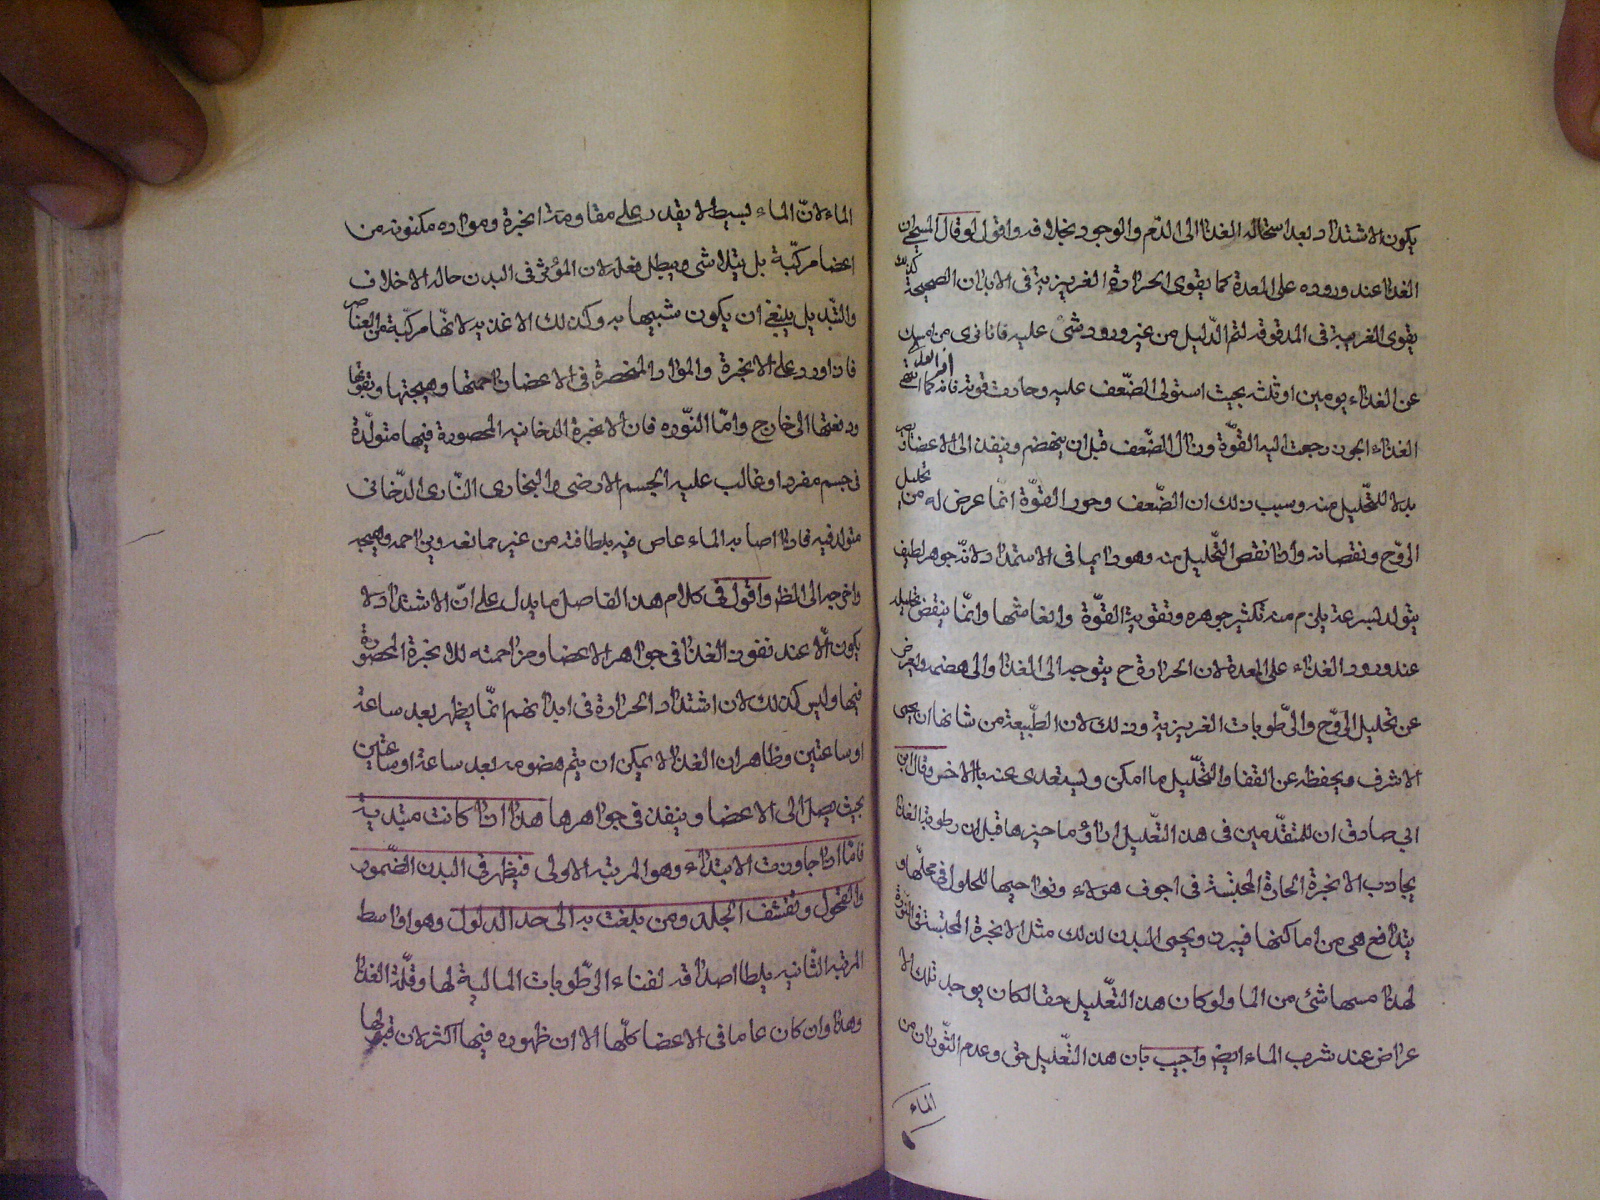 يكون الاشتداد بعد استحالة الغذاء الى الدم والوجود بخلافه واقول لو قال المسيحى ان
الغذا عند وروده على المعدة كما يقوى الحرارة الغريزية فى الابدان الصحيحة كذلك
يقوى الغريبة فى المدقوقه لتم الدليل من غير ورود شئ عليه فانا نرى من امسك
عن الغذاء يومين او ثلثه بحيث استولى الضعف عليه وخارت قوته فانه كما
الغذاء رجعت اليه القوّة وزال الضّعف قبل ان ينهضم وينفذ الى الاعضا
بدلا للتحليل منه وسبب ذلك ان الضّعف وخور القوّة انّما عرض له من تحليل
الروح ونقصانه واذا نقص التحليل منه وهو دايما فى الاستمداد لانّه جوهر لطيف
يتولد بسرعة يلزم منه تكثير جوهره وتقوية القوّة وانعاشها وانّما ينقص تحليله
عند ورود الغذاء على المعدة لان الحرارة ح يتوجه الى الغذا والى هضمه ويعرض
عن تحليل الروح والرّطوبات الغريزية وذلك لان الطّبيعة من شانها ان يحمى
الاشرف ويحفظه عن الفناء والتحّليل ما امكن ويستعدى عنه بالاخس وقال ابن
ابى صادق ان للمتقدّمين فى هذا التّعليل قبل ان رطوبة الغذا
يجاذب الابخرة الحارة المحتبسة فى اجوف هولاء ونواحيها للحلول فى محلّها و
يتدافع هى من اماكنها فيبرز ويحمى البدن لذلك مثل الابخرة المحتبسة فى النّورة
لهذا مسها شئ من الما ولو كان هذا التّعليل حقا لكان يوجد تلك الا
عراض عند شرب الماء ايض واجيب بان هذا التّعليل حق وعدم الثّوران من
الماء
الماء لانّ الماء بسيط لا يقدر على مقاومة ابخرة ومواده مكنونة من
اعضا مركّبة بل يتلاشى ويبطل فعله لان المؤثر فى البدن حاله الاخلاف
والتّبديل ينبغى ان يكون شبيها به وكذلك الاغذيه لانّها مركّبة من العناصر
فاذا ورد على الابخرة والمواد المنحصرة فى الاعضا زاحمتها وهيجتها وثورتها
ودفعتها الى خارج وامّا النّوره فان الابخرة الدخانيه المحصورة فيها متولّدة
فى جسم مفرد او غالب عليه الجسم الارضى والبخارى النّارى الدّخانى
متولد فيه فاذا اصابه الماء غاص فيه بلطافته من غير ممانعه وزاحمه وهيجه
واخرجه الى الظ واقول فى كلام هذا الفاضل ما يدل على انّ الاشتداد لا
يكون الّا عند نفوذ الغذا فى جواهر الاعضا ومزاحمته للابخرة المحصورة
فيها وليس كذلك لان اشتداد الحرارة فى ابدانهم انّما يظهر بعد ساعة
او ساعتين وظاهر ان الغذا لا يمكن ان يتم هضومه بعد ساعة او ساعتين
بحيث يصل الى الاعضا وينفذ فى جواهرها هذا اذا كانت مبتدية
فامّا اذا جاوزت الابتداء وهو المرتبه الاولى فيظهر فى البدن الضّمور
والقحول وتقشف الجلد ومن بلغت به الى حد الذبول وهو اواسط
المرتبه الثّانيه يلطا اصداقه لفناء الرّطوبات المالية لها وقلّة الغذا
وهذا وان كان عاما فى الاعضا كلّها الا ان ظهوره فيها اكثر لان